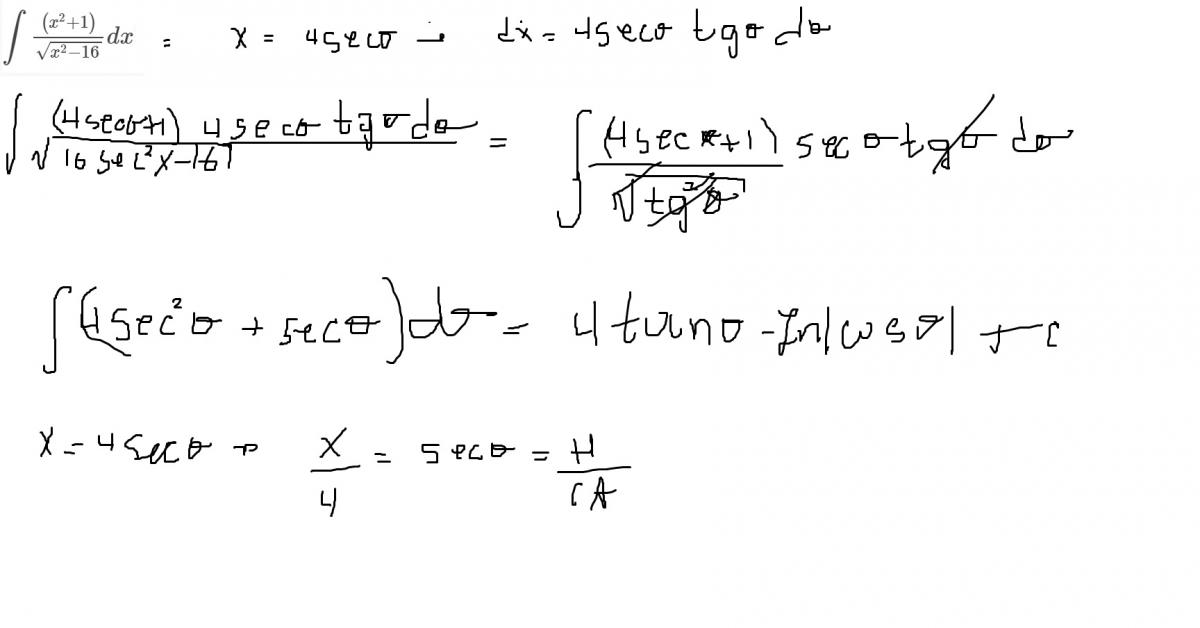 ∫ (x²+1)/√(x²−16) dx = x = 4secθ → dx = 4secθ tgθ dθ
∫ (4secθ+1) 4secθ tgθ dθ / √(16sec²x−16) = ∫ (4secx+1) secθ tgθ dθ / √(tg²θ)
∫ (4sec²θ + secθ) dθ = 4tanθ - ln|cosθ| + c
x = 4secθ → x/4 = secθ = H/CA